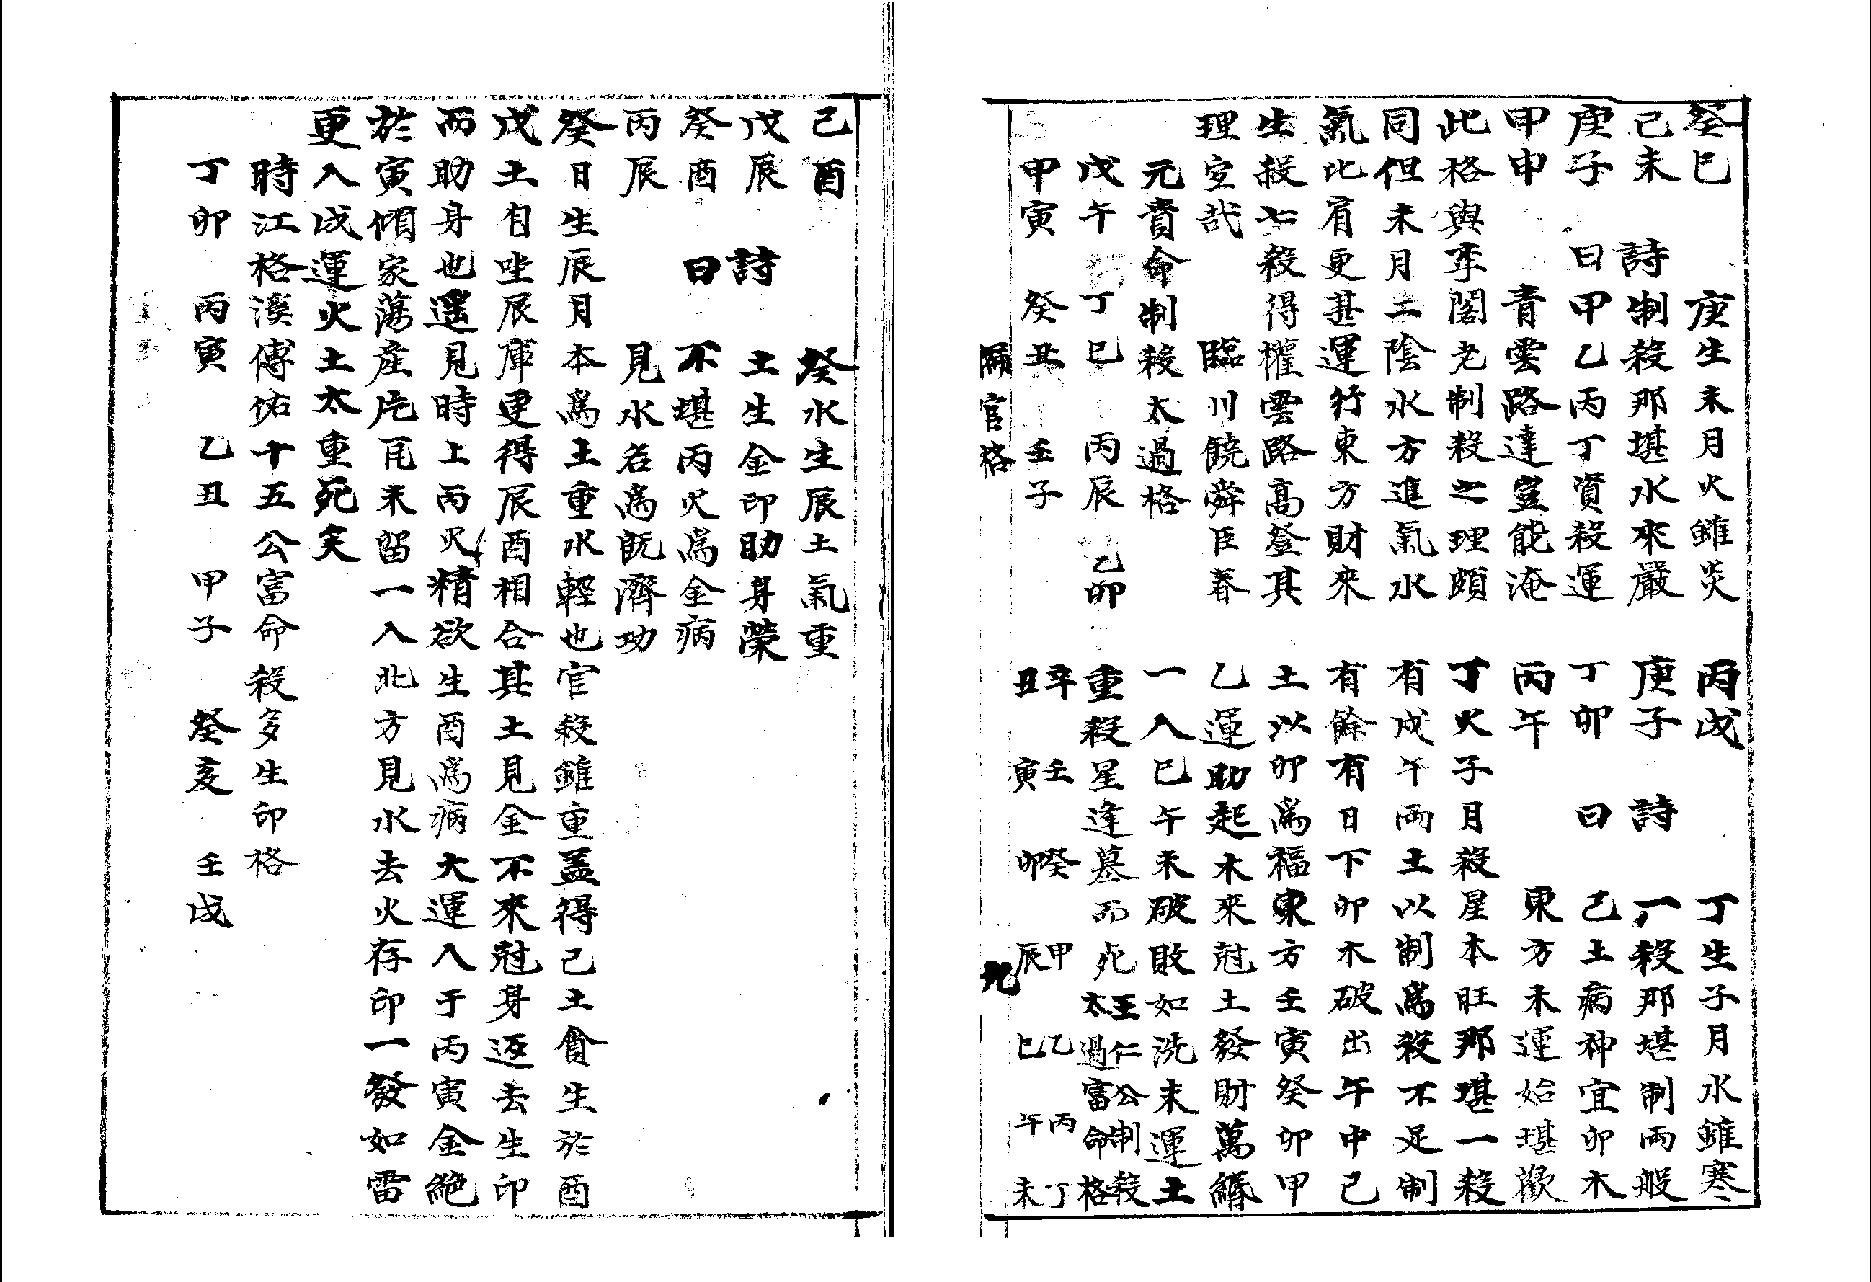 癸巳 庚生未月火雖炎
己未 詩 制殺那堪水來嚴
庚子 曰 甲乙丙丁資殺運
甲申 青雲路達豈能淹
此格與季閣老制殺之理頗
同但未月二陰水方進氣水
氣比肩更甚運行東方財來
生殺七殺得權雲路高登其
理宜哉 臨川饒舜臣春
元貴命制殺太過格
戊午 丁巳 丙辰 乙卯
甲寅 癸丑 壬子
丙戌 丁生子月水雖寒
庚子 詩 一殺那堪制兩般
丁卯 曰 己土病神宜卯木
丙午 東方未運始堪歡
丁火子月殺星本旺那堪一殺
有戌午兩土以制為殺不足制
有餘有日下卯木破出午中己
土以卯為福東方壬寅癸卯甲
乙運助起木來尅土發財萬緡
一入巳午未破敗如洗未運土
重殺星逢墓而死 王仁公制殺
太過富命格
辛丑 壬寅 癸卯 甲辰 乙巳 丙午 丁未
偏官格 九
己酉 癸水生辰土氣重
戊辰 詩 土生金印助身榮
癸酉 曰 不堪丙火為金病
丙辰 見水名為既濟功
癸日生辰月本為土重水輕也官殺雖重蓋得己土貪生於酉
戊土自坐辰庫更得辰酉相合其土見金不來尅身返去生印
而助身也遥見時上丙火精欲生酉為病大運入于丙寅金絕
於寅傾家蕩産片瓦未留一入北方見水去火存印一發如雷
更入戌運火土太重死矣
時江格溪傅佑十五公富命殺多生印格
丁卯 丙寅 乙丑 甲子 癸亥 壬戌